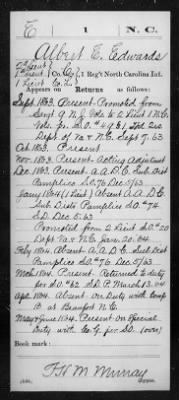 E 1 N.C.
Albert E. Edwards
2d Lieut
1st Lieut, Co. G, 1 Reg't North Carolina Inf.
Appears on Returns as follows:
Sept. 1863. Present. Promoted from
Sergt 9 N.J. Vols to 2 Lieut 1 N.C.
Vols. per S.O. #
Dept. of Va & N.C. Sept 7. 63
Oct. 1863. Present.
Nov. 1863. Present. Acting Adjutant
Dec. 1863. Present A.A.D.C. Sub. Dist
Pamplico S.O. 76 Dec. 5/63
Jany 1864 Absent A.A.D.C.
Sub. Dist Pamplico S.O. #76
S.D. Dec. 5/63
Promoted from 2 Lieut S.O. #20
Dept Va & N.C. Jan. 20. 64
Feby 1864. Absent A.A.D.C. Sub. Dist
Pamplico S.O. #76. Dec. 5/63
Mch. 1864. Present. Returned to duty
per S.O. #62 S.D.P. March 13. 64
Apr. 1864. Absent on Duty with Comp
at Beaufort N.C.
May & June 1864. Present. on Special
Duty with Co. G. per S.O. (over)
Book mark:
F H M Murray
Copyist.